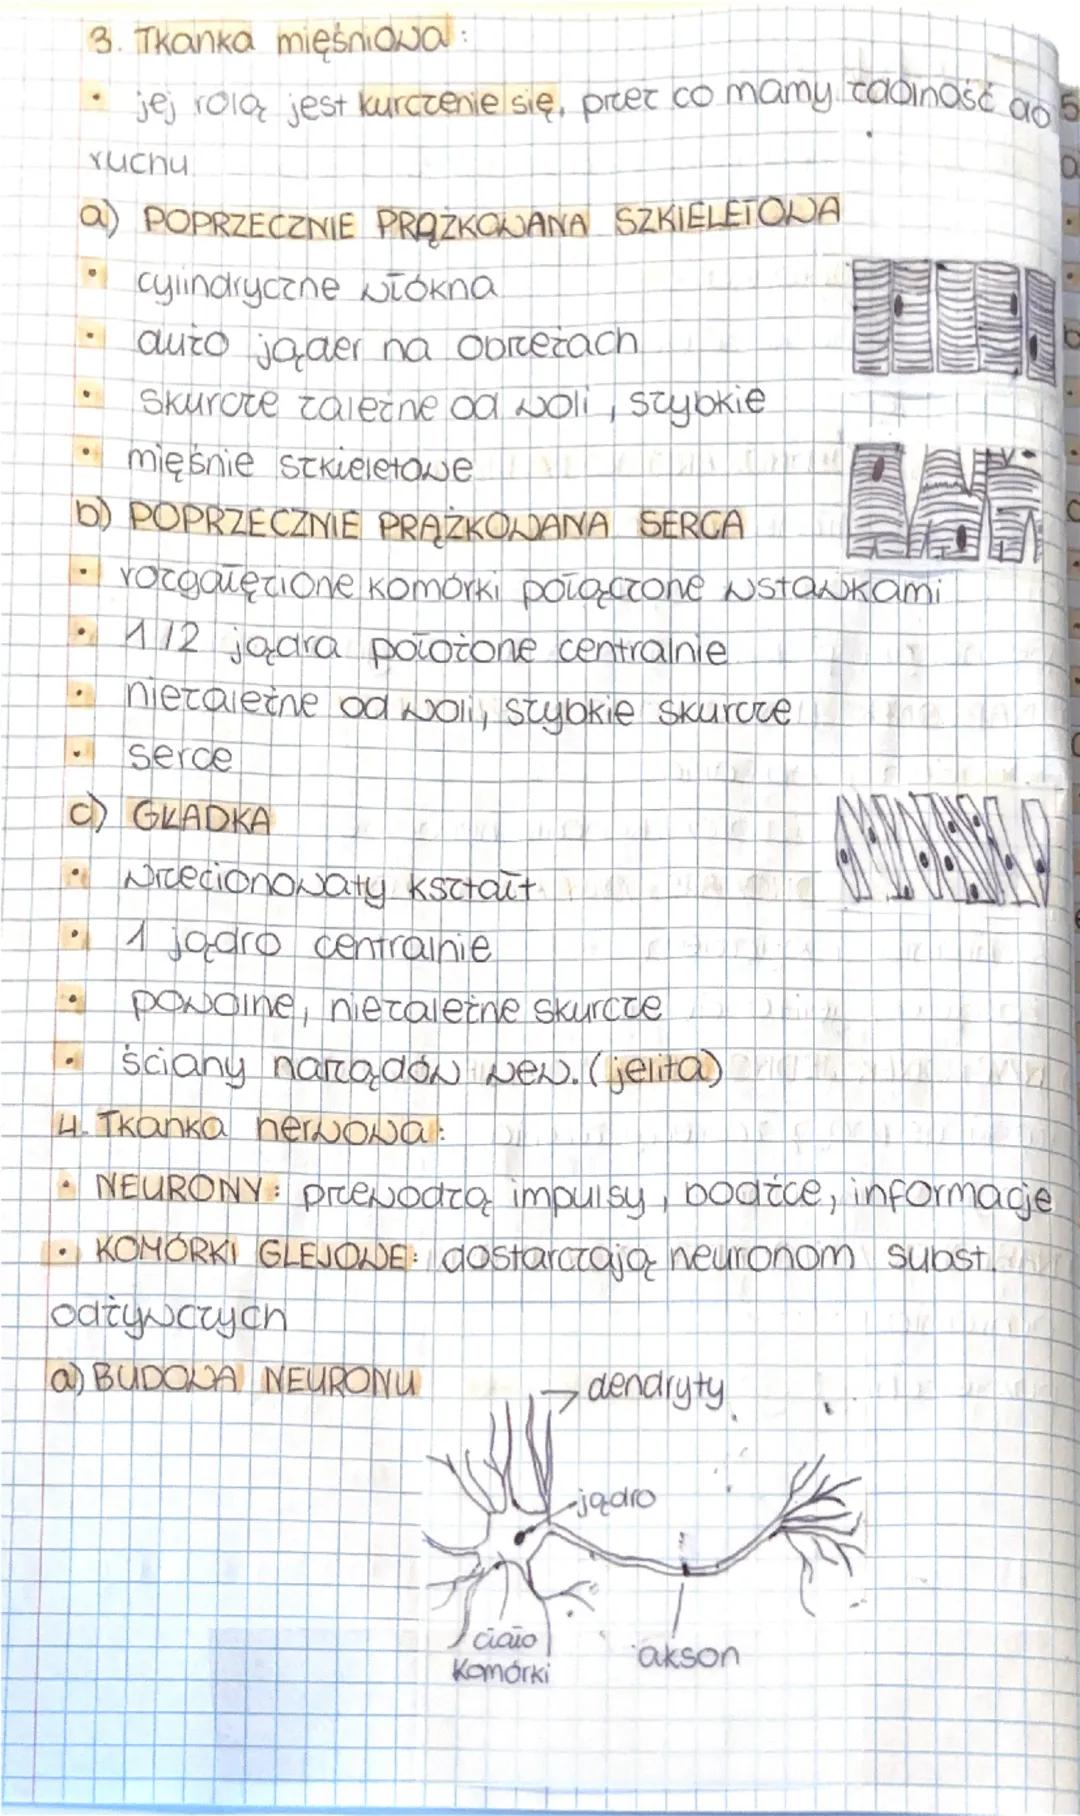 3. Tkanka mięśniowa:
• jej rolą jest kurczenie się, przez co mamy zdolność do
ruchu
a) POPRZECZNIE PRĄŻKOWANA SZKIELETOWA
• cylindryczne włókna
• dużo jąder na obrzeżach
• skurcze zależne od woli, szybkie
• mięśnie szkieletowe
b) POPRZECZNIE PRĄŻKOWANA SERCA
• rozgałęzione komórki połączone wstawkami
• 1/2 jądra położone centralnie
• niezależne od woli, szybkie skurcze
• serce
c) GŁADKA
• wrzecionowaty kształt
• 1 jądro centralnie
• powolne, niezależne skurcze
• ściany narządów wew. (jelita)
4. Tkanka nerwowa:
• NEURONY: przewodzą impulsy, bodźce, informacje
• KOMÓRKI GLEJOWE: dostarczają neuronom subst.
odżywczych
a) BUDOWA NEURONU
dendryty
jądro
ciało
komórki
akson